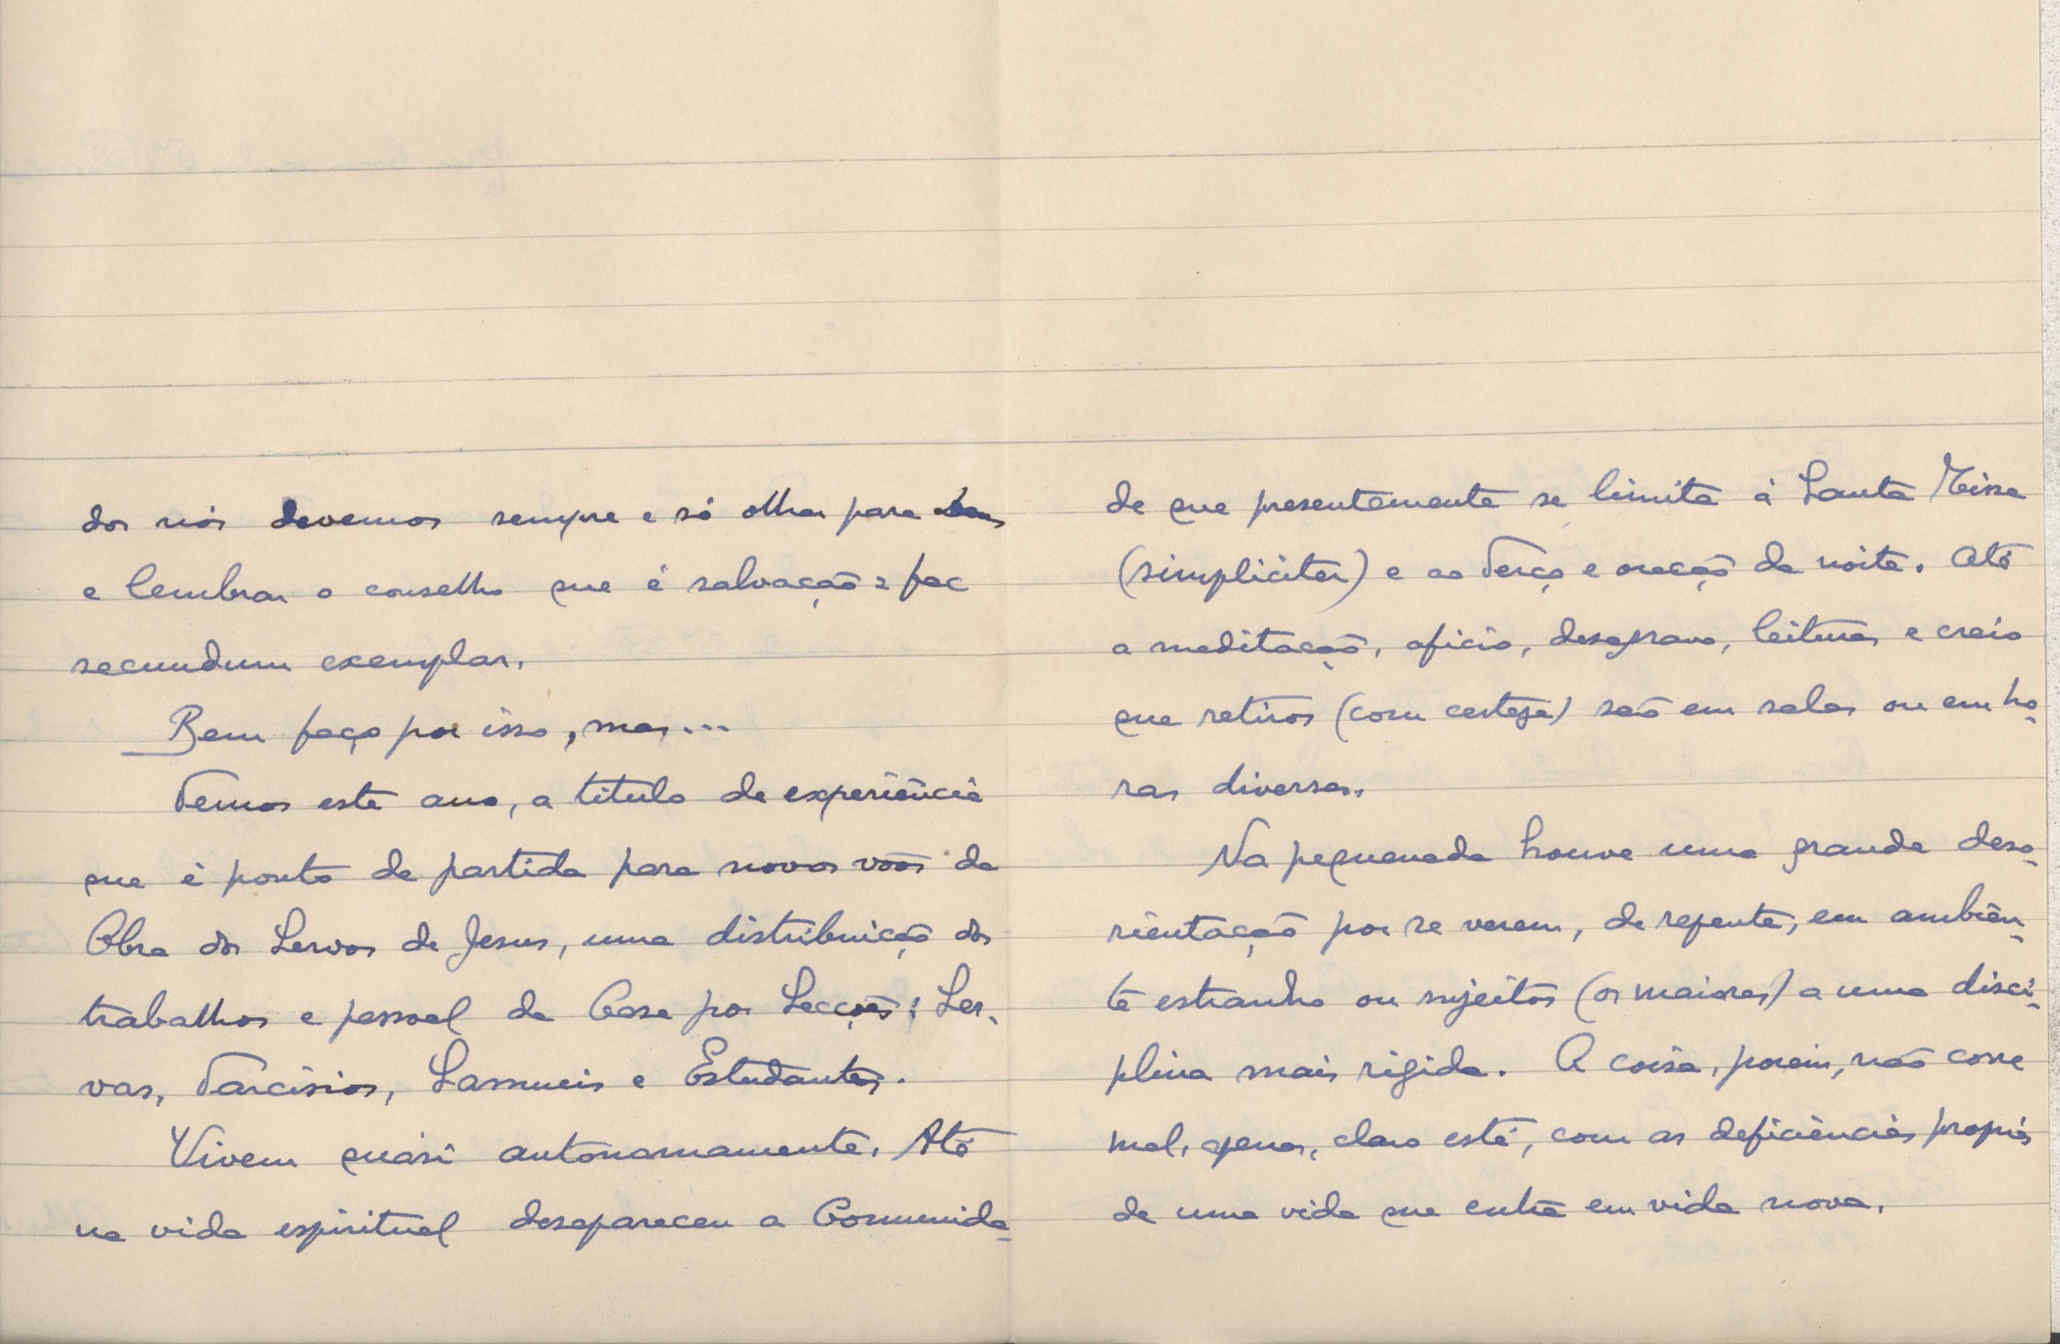 dos nós devemos sempre e só olhar para
e lembrar o conselho que é salvação: fac
secundum exemplar.
Bem faço por isso, mas...
Temos este ano, a título de experiência
que é ponto de partida para novos vôos da
Obra dos Servos de Jesus, uma distribuição dos
trabalhos e pessoal da Casa por Secções: Ser-
vas, Tarcísios, Samueis e Estudantes.
Vivem quási autonomamente. Até
na vida espiritual desapareceu a Comunida-
de que presentemente se limita à Santa Missa
(simpliciter) e ao Terço e oração da noite. Até
a meditação, ofício, desagravo, leituras e creio
que retiros (com certeza) são em salas ou em ho-
ras diversas.
Na pequenada houve uma grande deso-
rientação por se verem, de repente, em ambien-
te estranho ou sujeitos (os maiores) a uma disci-
plina mais rígida. A coisa, porém, não corre
mal, apenas, claro está, com as deficiências próprias
de uma vida que entra em vida nova.